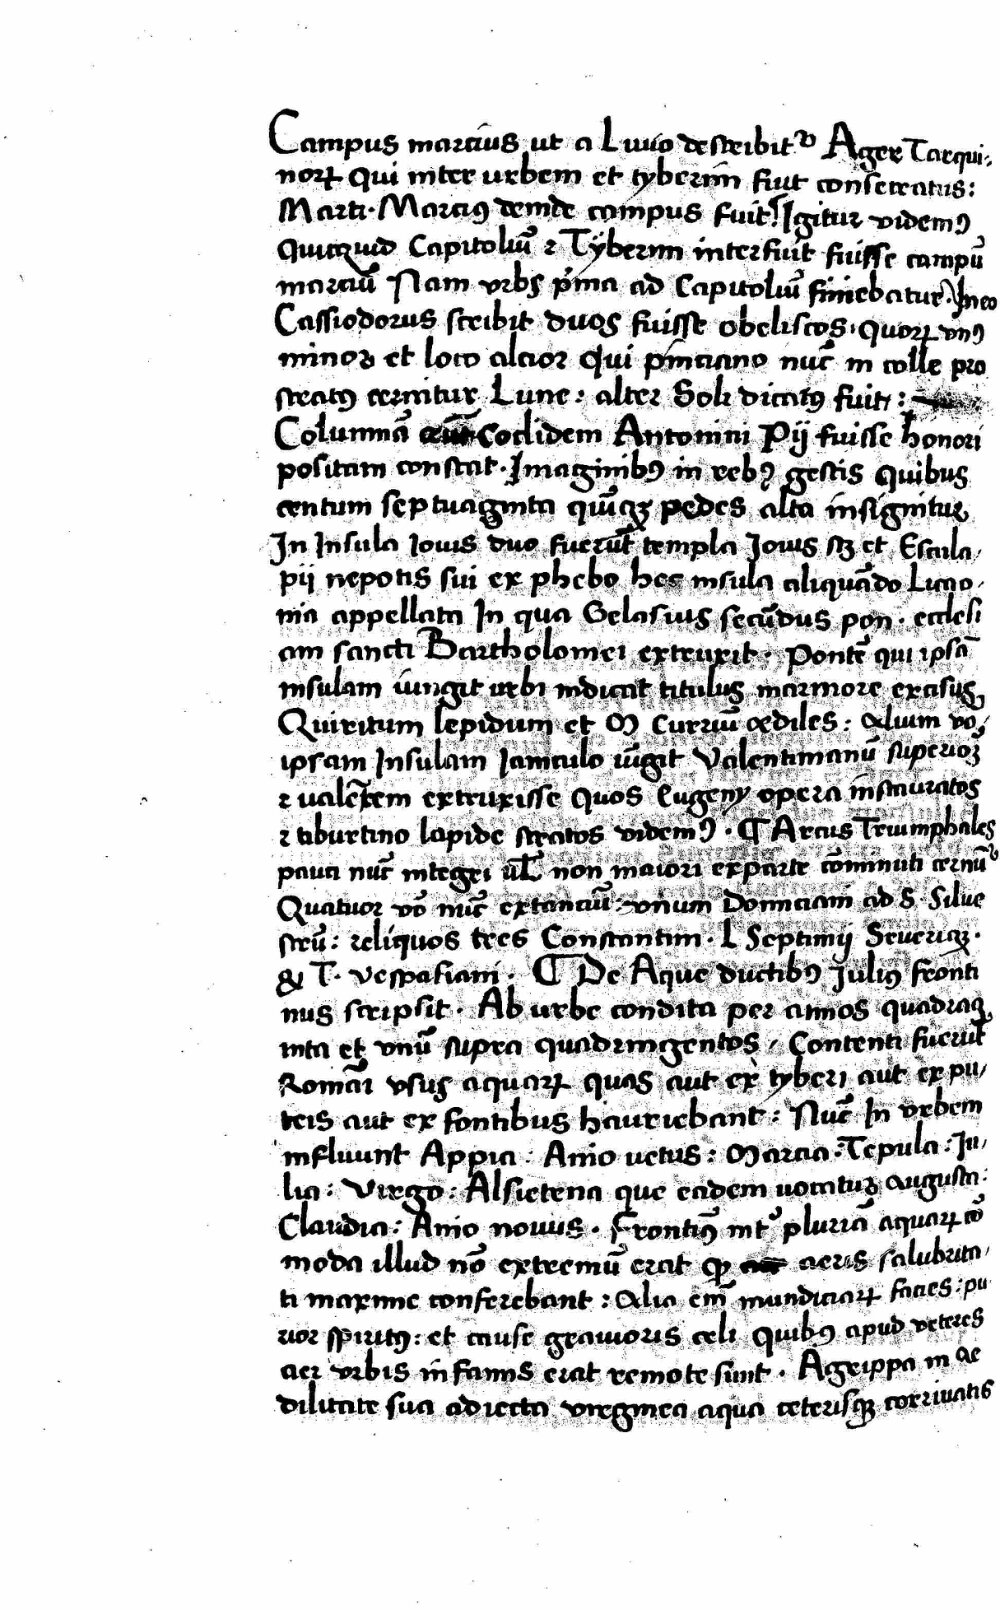 Campus marcius ut a Liuio describit᷑ Ager Tarqui-
norꝝ qui inter urbem et tyberim fuit consecratus:
Marti. Marciꝰ deinde campus fuit. Igitur videmꝰ
quicquid Capitoliū ⁊ Tÿberim interfuit fuisse campū
marciū Nam urbs pⁱma ad Capitoliū finiebatur. In eo
Cassiodorus scribit duos fuisse obeliscos. quorꝝ vnꝰ
minor et loco alcior qui pinciano nūc in colle pro
stratꝰ cernitur Lune: alter Soli dicatꝰ fuit:
Columnā Coclidem Antonini Pij fuisse honori
positam constat. Imaginibꝰ in rebꝰ gestis quibus
centum septuaginta quīqꝫ pedes alta insignitur
In Insula Iouis duo fuerūt templa Iouis sꝫ et Escula-
pij nepotis sui ex phebo hec insula aliquādo Licao-
nia appellata In qua Gelasius secūdus pon. ecclesi
am sancti Bartholomei extruxit. Pontē qui ipsā
insulam iungit urbi indicat titulus marmore excisus
Quiritum lepidum et M Curriū ædiles: alium vo
ipsam Insulam Ianiculo iūgit Valentinianū superiorꝫ
⁊ ualētem extruxisse quos Eugenij opera instauratos
⁊ tiburtino lapide stratos videmꝰ. ¶ Arcus Triumphales
pauci nūc integri uł non maiori ex parte cōminuti cernūt᷑
Quatuor vō nūc extanciū: vnum Domiciani ad S. Silue
strū: reliquos tres Constantini. L Septimij Seueriqꝫ.
& T. Vespasiani. ¶ De Aque ductibꝰ Iuliꝰ fronti
nus scripsit. Ab urbe condita per annos quadrag
inta et vnū supra quadringentos, Contenti fuerūt
Romāi vsus aquarꝝ quas aut ex tyberi aut ex pu-
teis aut ex fontibus hauriebant: Nūc In vrbem
influunt Appia: Anio uetus: Marcia: Tepula: Iu-
lia: Virgo: Alsietena que eadem uocatur augusta:
Claudia: Anio nouus. Frontinꝰ int᷑ plurimā aquarꝝ cō
moda illud nō extremū erat qꝫ aeris salubrita-
ti maxime conferebant: alia em̄ mundiciarꝝ facies: pu
rior spiritꝰ: et cause grauioris celi quibꝰ apud veteres
aer urbis infamis erat remote sunt. Agrippa in æ
dilitate sua adiecta virginea aqua ceterisqꝫ corriuatis